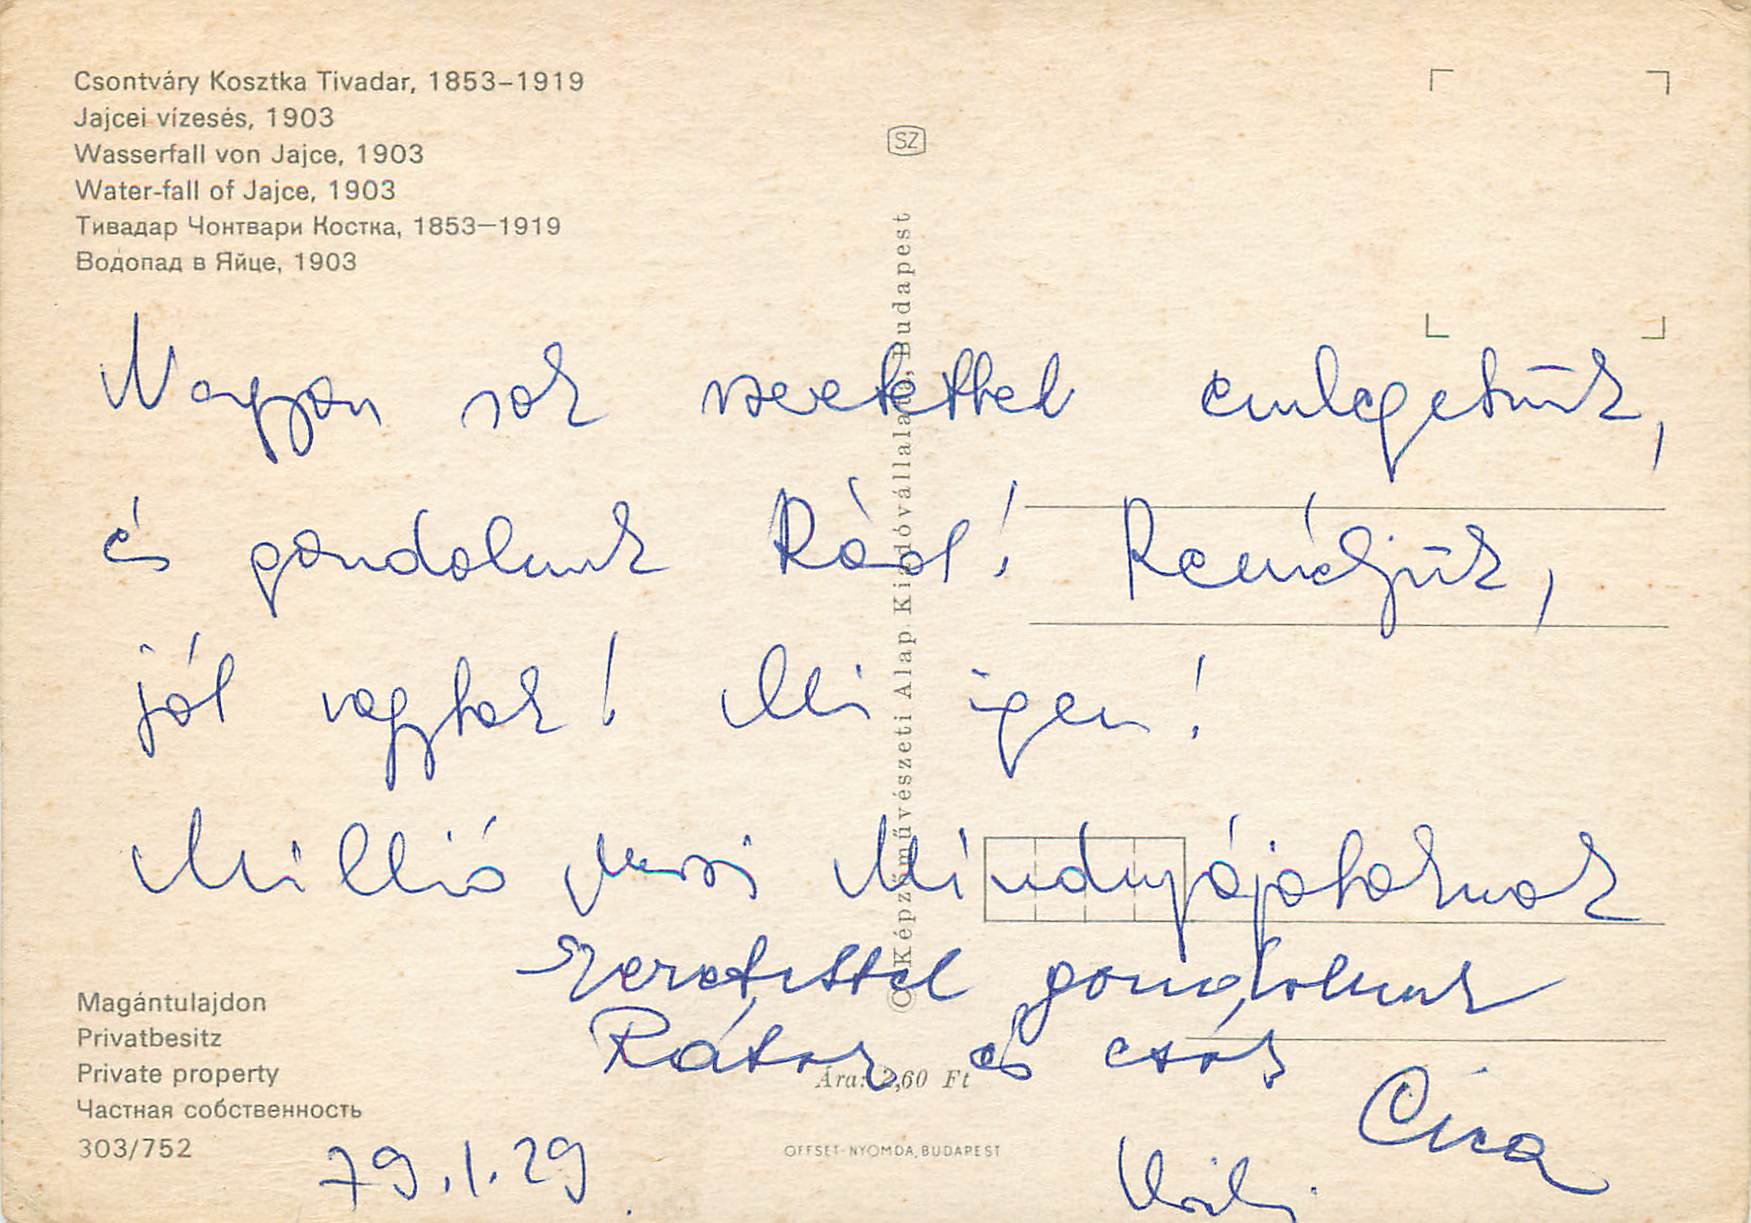 Csontváry Kosztka Tivadar, 1853–1919
Jajcei vízesés, 1903
Wasserfall von Jajce, 1903
Water-fall of Jajce, 1903
Тивадар Чонтвари Костка, 1853—1919
Водопад в Яйце, 1903
SZ
© Képzőművészeti Alap Kiadóvállalata, Budapest
Nagyon sok szeretettel emlegetünk,
és gondolunk Rád! Reméljük,
jól vagytok! Mi igen!
Millió puszi Mindnyájatoknak
Szeretettel gondolunk
Rátok és csók
Cica
79.1.29
Magántulajdon
Privatbesitz
Private property
Частная собственность
303/752
Ára: 2,60 Ft
OFFSET-NYOMDA, BUDAPEST